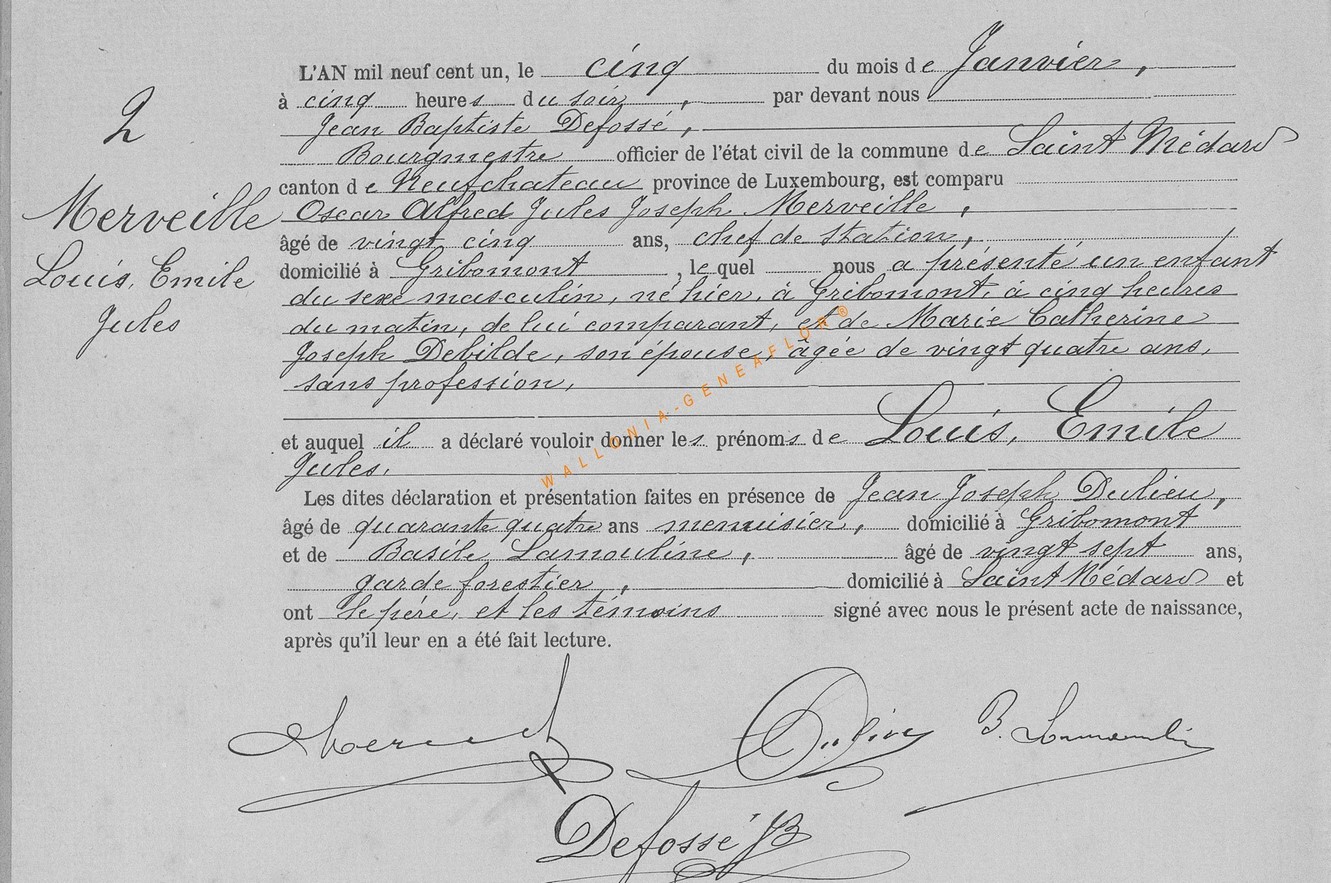 2
Merveille
Louis, Emile
Jules
L'AN mil neuf cent un, le cinq du mois de Janvier,
à cinq heures du soir, par devant nous
Jean Baptiste Defossé,
Bourgmestre officier de l'état civil de la commune de Saint Médard
canton de Neufchateau province de Luxembourg, est comparu
Oscar Alfred Jules Joseph Merveille,
âgé de vingt cinq ans, chef de station,
domicilié à Gribomont, lequel nous a présenté un enfant
du sexe masculin, né hier, à Gribomont, à cinq heures
du matin, de lui comparant, et de Marie Catherine
Joseph Debilde, son épouse, âgée de vingt quatre ans,
sans profession,
et auquel il a déclaré vouloir donner les prénoms de Louis, Emile
Jules.
Les dites déclaration et présentation faites en présence de Jean Joseph Dulieu,
âgé de quarante quatre ans menuisier, domicilié à Gribomont
et de Basile Lamouline, âgé de vingt sept ans,
garde forestier, domicilié à Saint Médard et
ont le père, et les témoins signé avec nous le présent acte de naissance,
après qu'il leur en a été fait lecture.
B.
Defossé JB
WALLONIA-GENEAFLOR®